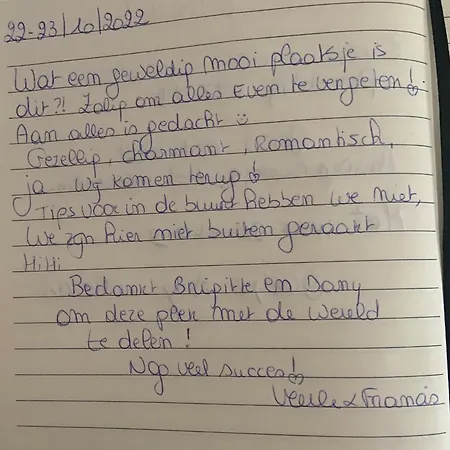 22-23/10/2022
Wat een geweldig mooi plaatsje is
dit?! Zalig om alles even te vergeten!
Aan alles is gedacht ☺
Gezellig, charmant, Romantisch,
ja wij komen terug!
Tips voor in de buurt hebben we niet,
we zijn hier niet buiten geraakt
HiHi
Bedankt Brigitte en Dany
om deze plek met de wereld
te delen!
Nog veel succes!
Veerle & Francis